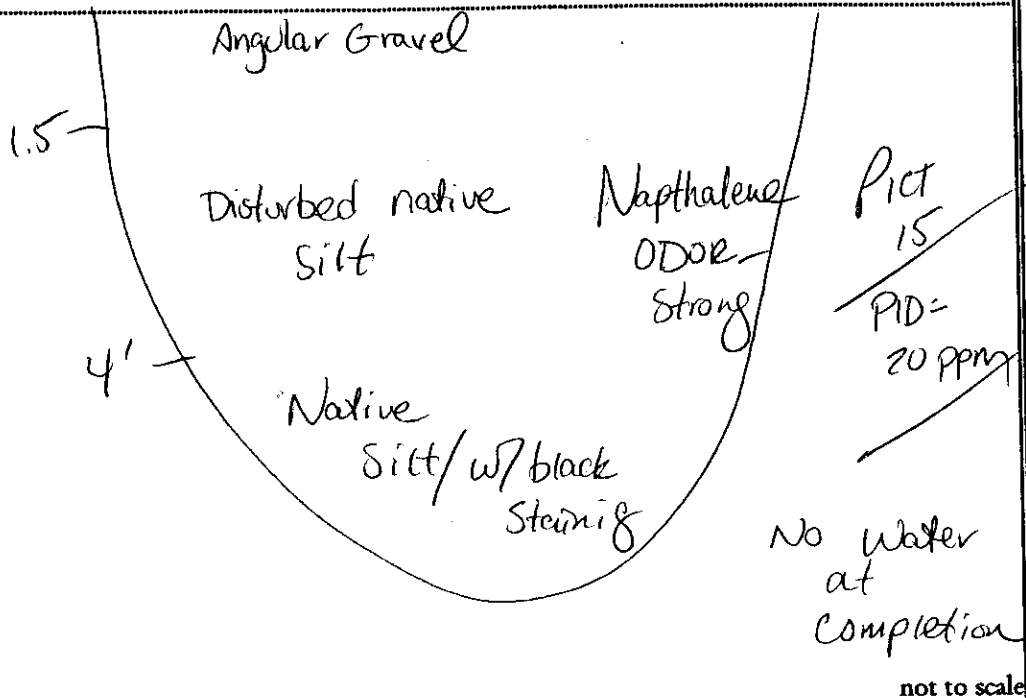 Angular Gravel
1.5
Disturbed native
Silt
Napthalene
ODOR
Strong
Pict
15
PID=
20 ppm
4'
Native
Silt/ w/ black
Stainig
No Water
at
Completion
not to scale